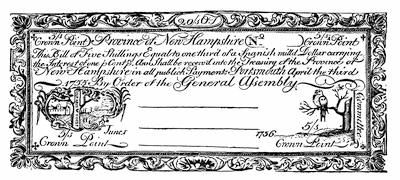 2046
5/s Crown Point Province of New Hampshire No 5/s Crown Point
This Bill of Five Shillings Equal to one third of a Spanish mill'd Dollar carrying
the Interest of one p Cent p Ann Shall be receiv'd into the Treasury of the Province of
New Hampshire in all publick Payments Portsmouth April the third
1755 By Order of the General Assembly
Committee
5/s June 1756 5/s
Crown Point Crown Point